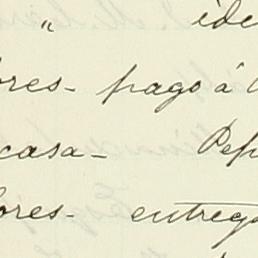 " ide
ores- pags á
casa- Pep
ores- entrega